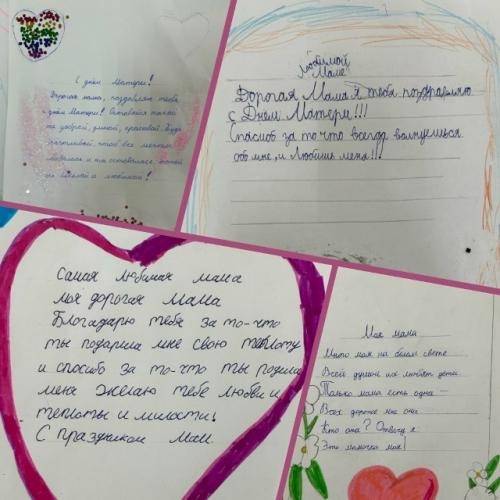 С днём Матери!
Дорогая мама, поздравляю тебя
с днём Матери! Оставайся такой
же доброй, умной, красивой. Будь
счастливой, чтоб все мечты
и ты оставалась такой
же весёлой и любимой!
Любимой
Маме
Дорогая Мама я тебя поздравляю
с Днём Матери!!!
Спасиоб за то что всегда волнуешься
обо мне, и Любишь меня!!!
Самая любимая мама
моя дорогая мама
Благадарю тебя за то-что
ты подарила мне свою теплоту
и спосибо за то-что ты родила
меня желаю тебе любви и
теплоты и милости!
С праздником мам
Моя мама
Много мам на белом свете
Всей душой их любят дети.
Только мама есть одна —
Всех дороже мне она.
Кто она? Отвечу я:
Это мамочка моя!